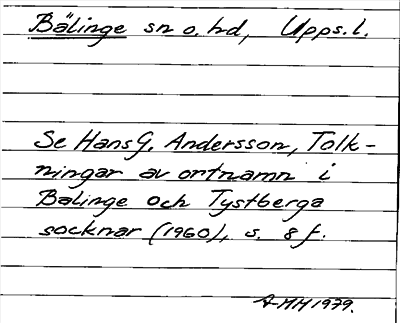 Bälinge sn o. hd, Upps. l.
Se Hans G. Andersson, Tolk-
ningar av ortnamn i
Bälinge och Tystberga
socknar (1960), s. 8 f.
A-MH 1979.